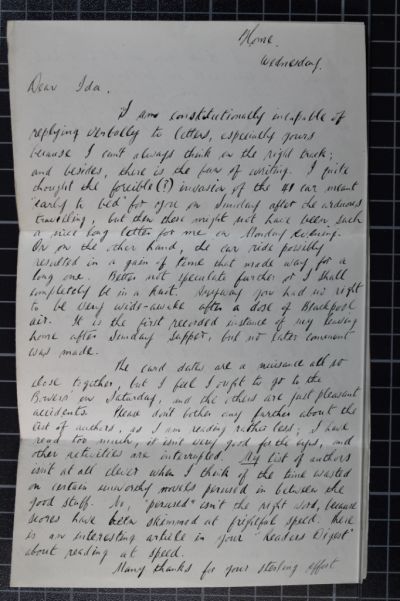 Home.
Wednesday.
Dear Ida,
I am constitutionally incapable of
replying verbally to letters, especially yours
because I can't always think on the right track;
and besides, there is the fun of writing. I quite
thought the forcible (?) invasion of the car meant
"early to bed" for you on Sunday after the arduous
travelling, but then there might not have been such
a nice long letter for me on Monday evening.
Or on the other hand, the car ride possibly
resulted in a gain of time that made way for a
long one. Better not speculate further or I shall
completely be in a knot. Anyway you had no right
to be very wide-awake after a dose of Blackpool
air. It is the first recorded instance of my leaving
home after Sunday supper, but no later comment
was made.
The card dates are a nuisance all so
close together, but I feel I ought to go to the
Bowers' on Saturday, and the others are just pleasant
accidents. Please don't bother any further about the
list of authors, as I am reading rather less; I have
read too much, it isn't very good for the eyes, and
other activities are interrupted. My list of authors
isn't at all clever when I think of the time wasted
on certain unworthy novels perused in between the
good stuff. No, "perused" isn't the right word, because
scores have been skimmed at frightful speed. There
is an interesting article in your "Readers Digest"
about reading at speed.
Many thanks for your sterling effort